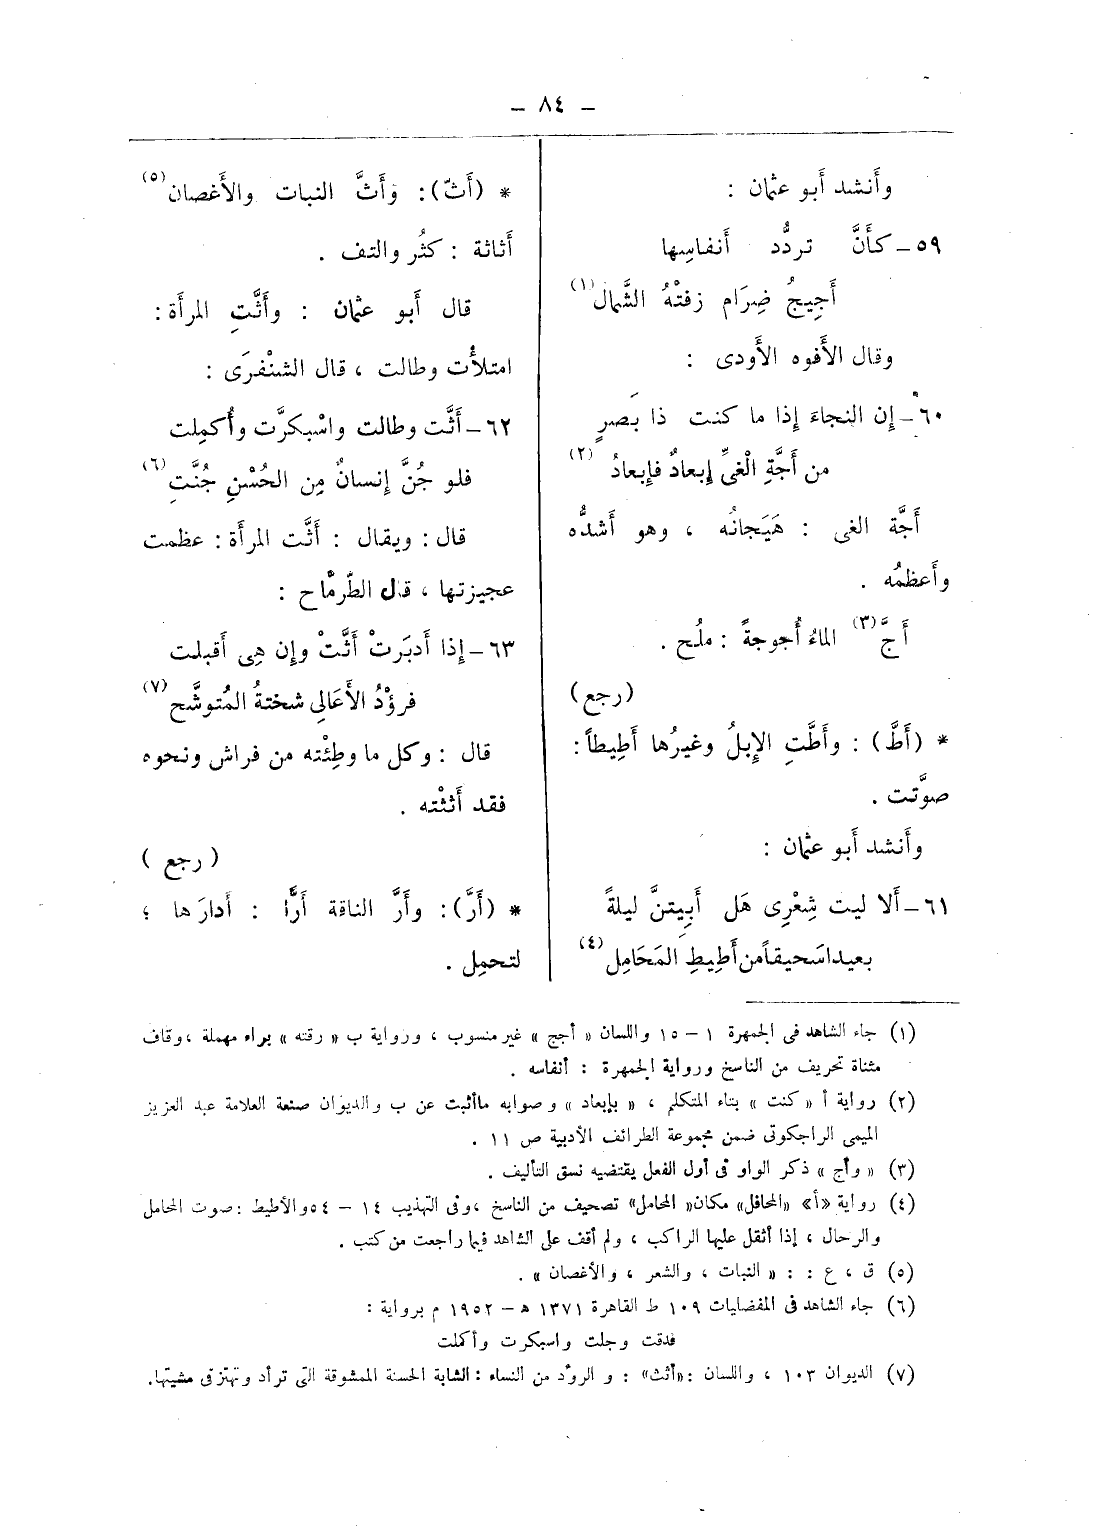 – ٨٤ –
وأَنشد أَبو عثمان :
٥٩ – كأَنَّ تردُّد أَنفاسِها
أَجِيجُ ضِرَام زفتْهُ الشَّمال(١)
وقال الأَفوه الأَودى :
٦٠ – إِن النجاءَ إِذا ما كنت ذا بَصرٍ
من أَجَّةِ الْغىِّ إِبعادٌ فإِبعادُ(٢)
أَجَّة الغى : هَيَجانُه ، وهو أَشدُّه
وأَعظمُه .
أَجَّ(٣) الماءُ أُجوجةً : ملُح .
(رجع)
* (أَطَّ) : وأَطَّتِ الإِبلُ وغيرُها أَطِيطاً :
صوَّتت .
وأَنشد أَبو عثمان :
٦١ – أَلا ليت شِعْرِى هَل أَبِيتنَّ ليلةً
بعيداسَحيقاً من أَطِيطِ المَحَامِل(٤)
* (أَثّ) : وأَثَّ النبات والأَغصان(٥)
أَثاثة : كثُر والتف .
قال أَبو عثمان : وأَثَّتِ المرأَة :
امتلأَت وطالت ، قال الشنْفرَى :
٦٢ – أَثَّت وطالت واسْبكرَّت وأُكمِلت
فلو جُنَّ إِنسانٌ مِن الحُسْنِ جُنَّتِ(٦)
قال : ويقال : أَثَّت المرأَة : عظمت
عجيزتها ، قال الطِّرمَّاح :
٦٣ – إِذا أَدبَرتْ أَثَّتْ وإِن هِى أَقبلت
فرؤْدُ الأَعَالِى شختةُ المُتوشَّح(٧)
قال : وكل ما وطِئْته من فراش ونحوه
فقد أَثثْته .
(رجع)
* (أَرَّ) : وأَرَّ الناقة أَرًّا : أَدارَها ؛
لتحمِل .
(١) جاء الشاهد فى الجمهرة ١ – ١٥ واللسان « أجج » غير منسوب ، ورواية ب « رقته » براء مهملة ، وقاف
مثناة تحريف من الناسخ ورواية الجمهرة : أنفاسه .
(٢) رواية أ « كنت » بتاء المتكلم ، « بإبعاد » وصوابه ماأثبت عن ب والديوان صنعة العلامة عبد العزيز
الميمى الراجكوتى ضمن مجموعة الطرائف الأدبية ص ١١ .
(٣) « وأج » ذكر الواو فى أول الفعل يقتضيه نسق التأليف .
(٤) رواية «أ» «المحافل» مكان« المحامل» تصحيف من الناسخ ،وفى التهذيب ١٤ – ٥٤ والأطيط : صوت المحامل
والرحال ، إذا أثقل عليها الراكب ، ولم أقف على الشاهد فيما راجعت من كتب .
(٥) ق ، ع : : « النبات ، والشعر ، والأغصان » .
(٦) جاء الشاهد فى المفضليات ١٠٩ ط القاهرة ١٣٧١ ه – ١٩٥٢ م برواية :
فدقت وجلت واسبكرت وأكملت
(٧) الديوان ١٠٣ ، واللسان : «أثث» : و الرؤد من النساء : الشابة الحسنة الممشوقة التى ترأد وتهتز فى مشيتها.